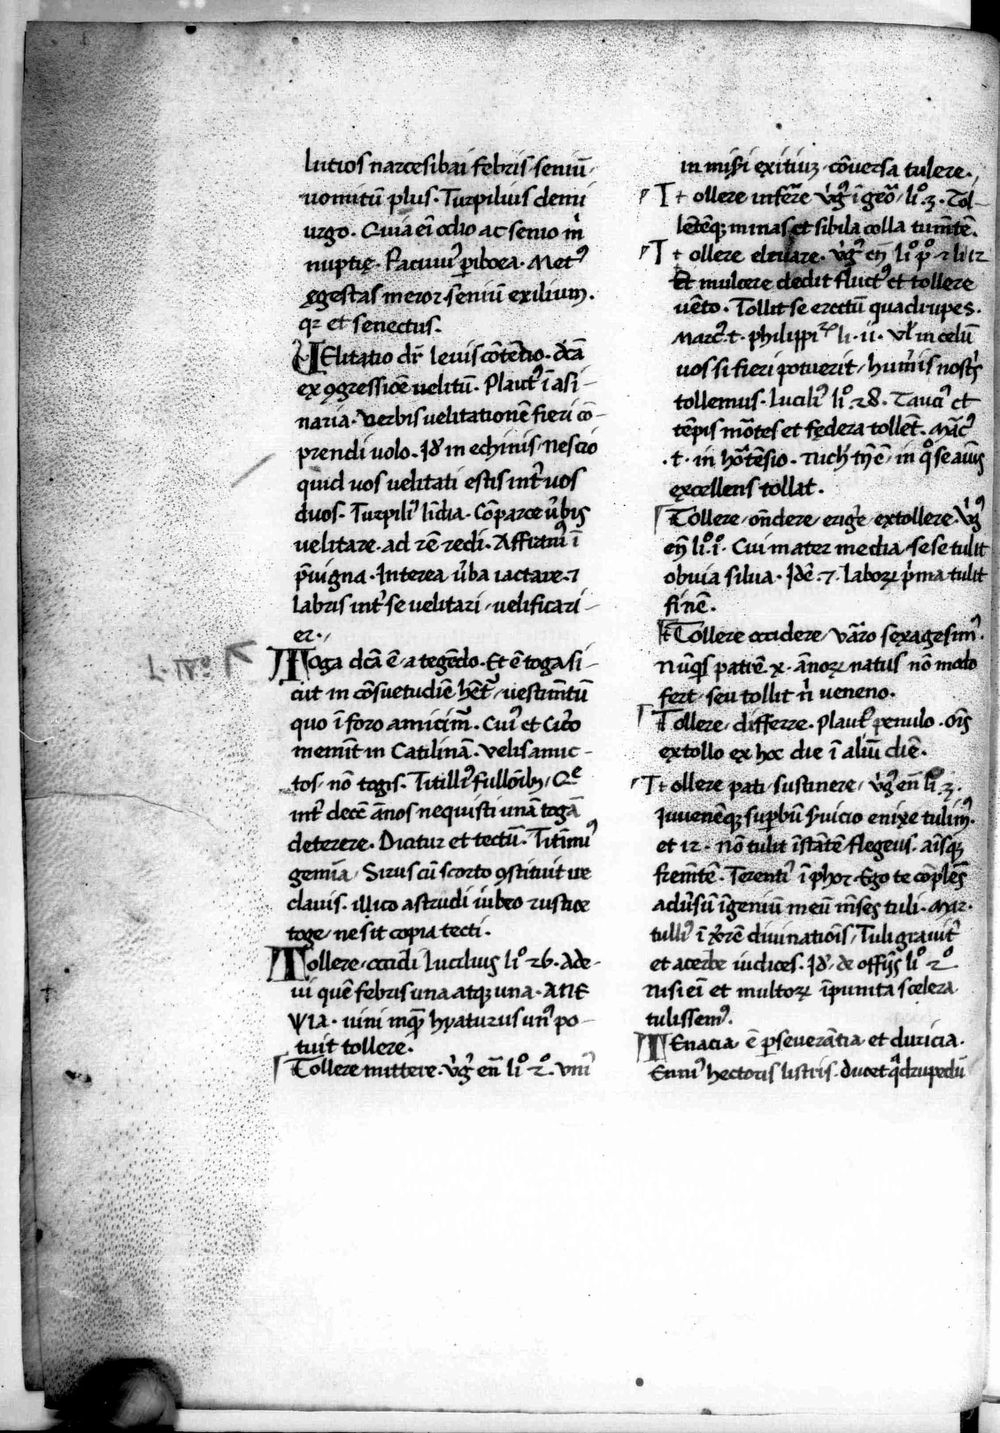 lutios narcesibai febris seniū.
uomitū plus. Turpilius demi
urgo. Quia eī odio ac senio m̄
nuptię. Pacuuiꝰ piboea. Metꝰ
ęgestas meror seniū exilium.
qꝫ et senectus.
VElitatio dr̄ leuis cōtētio. dc̄a
ex ꝯgressiōe uelitū. Plautꝰ ī asi-
naria. Verbis uelitationē fieri cō-
prendi uolo. Id' in echinis nescio
quid uos uelitati estis int' uos
duos. Turpiliꝰ lidia. Cōparce u'bis
uelitare. ad rē redi. Affraniꝰ ī
p̄uigna. Interea u'ba iactare. ⁊
labris int' se uelitari uelificari-
er.
TOga dc̄a ē a tegēdo. Et ē toga si-
cut in cōsuetudiē hēt' uestimtū
quo ī foro amicim̄. Cui' et Cic'o
memit in Catilinā. Velis amic-
tos nō togis. Titilliꝰ fullōibꝫ. Qe
int' decē ānos nequisti unā togā
deterere. Dicitur et tectū. Titīniꝰ
gemīa. Sirus cū scorto ꝯstituit ue
clauis. illico astrudi iubeo rusticę
toge, ne sit copia tecti.
TOllere. occidi Lucilius liº 26. Ade-
ui quē febris una atqꝫ una. ΑΠΕ
ΨΙΑ. uini inqꝫ hyaturus unꝰ po-
tuit tollere.
Tollere mittere. v'gꝰ en̄ liº 2º. vniꝰ
in misi exitiuꝫ. cōuersa tulere.
Tt ollere inferre v'gꝰ ī geo' liº 3. Tol-
lētēqꝫ minas et sibila colla tumētē.
Tt ollere eleuare. v'gꝰ en̄ liº pº ⁊ li 12
Et mulcere dedit fluctꝰ et tollere
uēto. Tollit se erectū quadrupes.
Marcꝰ t. philippi li. ii. vl' in celū
uos si fieri potuerit humis nost's
tollemus. Luciliꝰ liº 28. Tauci' et
tēpis mōtes et fędera tollēt. Marcꝰ
.t. in hōtēsio. in qº se auius
excellens tollat.
Tollere ōndere erige' extollere. v'gꝰ
en̄ liº iº. Cui mater media sese tulit
obuia silua. Idē. 7. laboꝝ p'ma tulit
finē.
Tollere occidere uārro sexagesimꝰ.
Nūqs patiē x. ānoꝝ natus nō modo
fert seu tollit n' ueneno.
Tollere differre. Plautꝰ penulo. oīs
extollo ex hoc die ī aliū diē.
Tt ollere pati sustinere v'gꝰ en̄ liº 3.
Iuuenēqꝫ supbū s'uicio enixe tulimꝰ.
et 12. nō tulit īstātē flegeus. aīsqꝫ
fremtē. Terentiꝰ ī phor. Ego te cōples
aduersū īgeniū meū m̄ses tuli. Mar.
tulliꝰ ī divinatiōis. Tuli grauit'
et acerbe iudices. Id' de offijs liº 2º
nisi eī et multoꝝ īpunita scelera
tulissemꝰ.
TEnacia ē pseuerātia et duricia.
Enniꝰ hectoris listris. ducet q̄drupedū